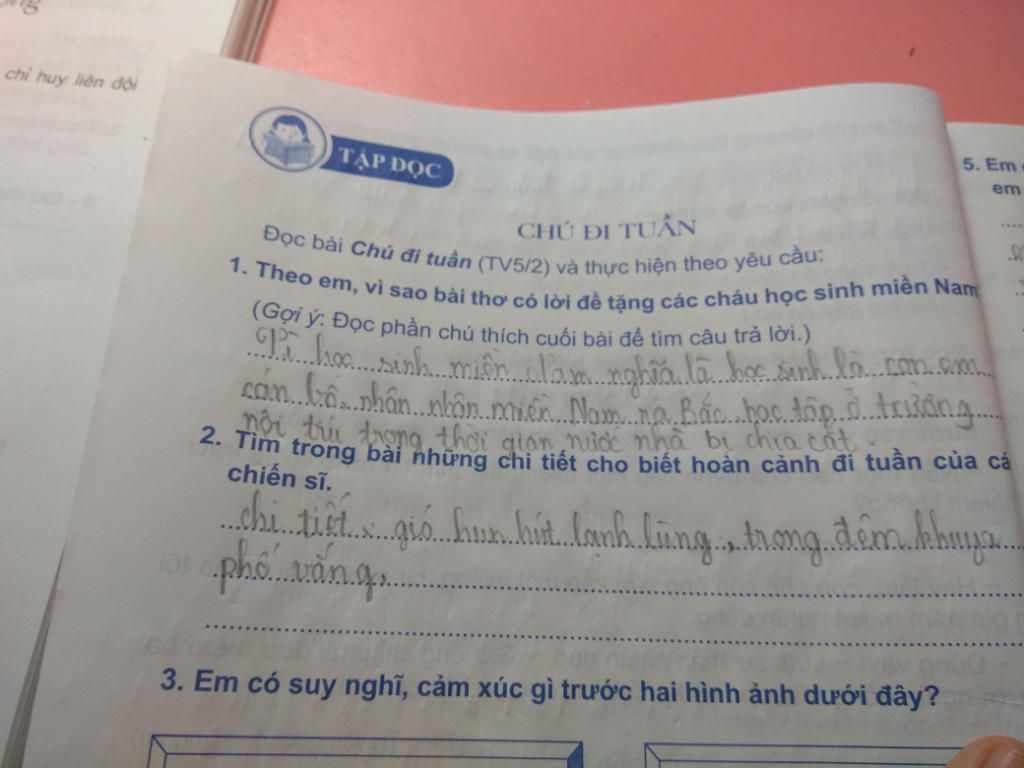 chỉ huy liên đội
TẬP ĐỌC
CHÚ ĐI TUẦN
Đọc bài Chú đi tuần (TV5/2) và thực hiện theo yêu cầu:
1. Theo em, vì sao bài thơ có lời đề tặng các cháu học sinh miền Nam
(Gợi ý: Đọc phần chú thích cuối bài để tìm câu trả lời.)
Vì học sinh miền Nam nghĩa là học sinh là con em
cán bộ, nhân nhân miền Nam ra Bắc học tập ở trường
nội trú trong thời gian nước nhà bị chia cắt
2. Tìm trong bài những chi tiết cho biết hoàn cảnh đi tuần của
chiến sĩ.
chi tiết, gió hun hút lạnh lùng, trong đêm khuya
phố vắng,
3. Em có suy nghĩ, cảm xúc gì trước hai hình ảnh dưới đây?
5. Em
em